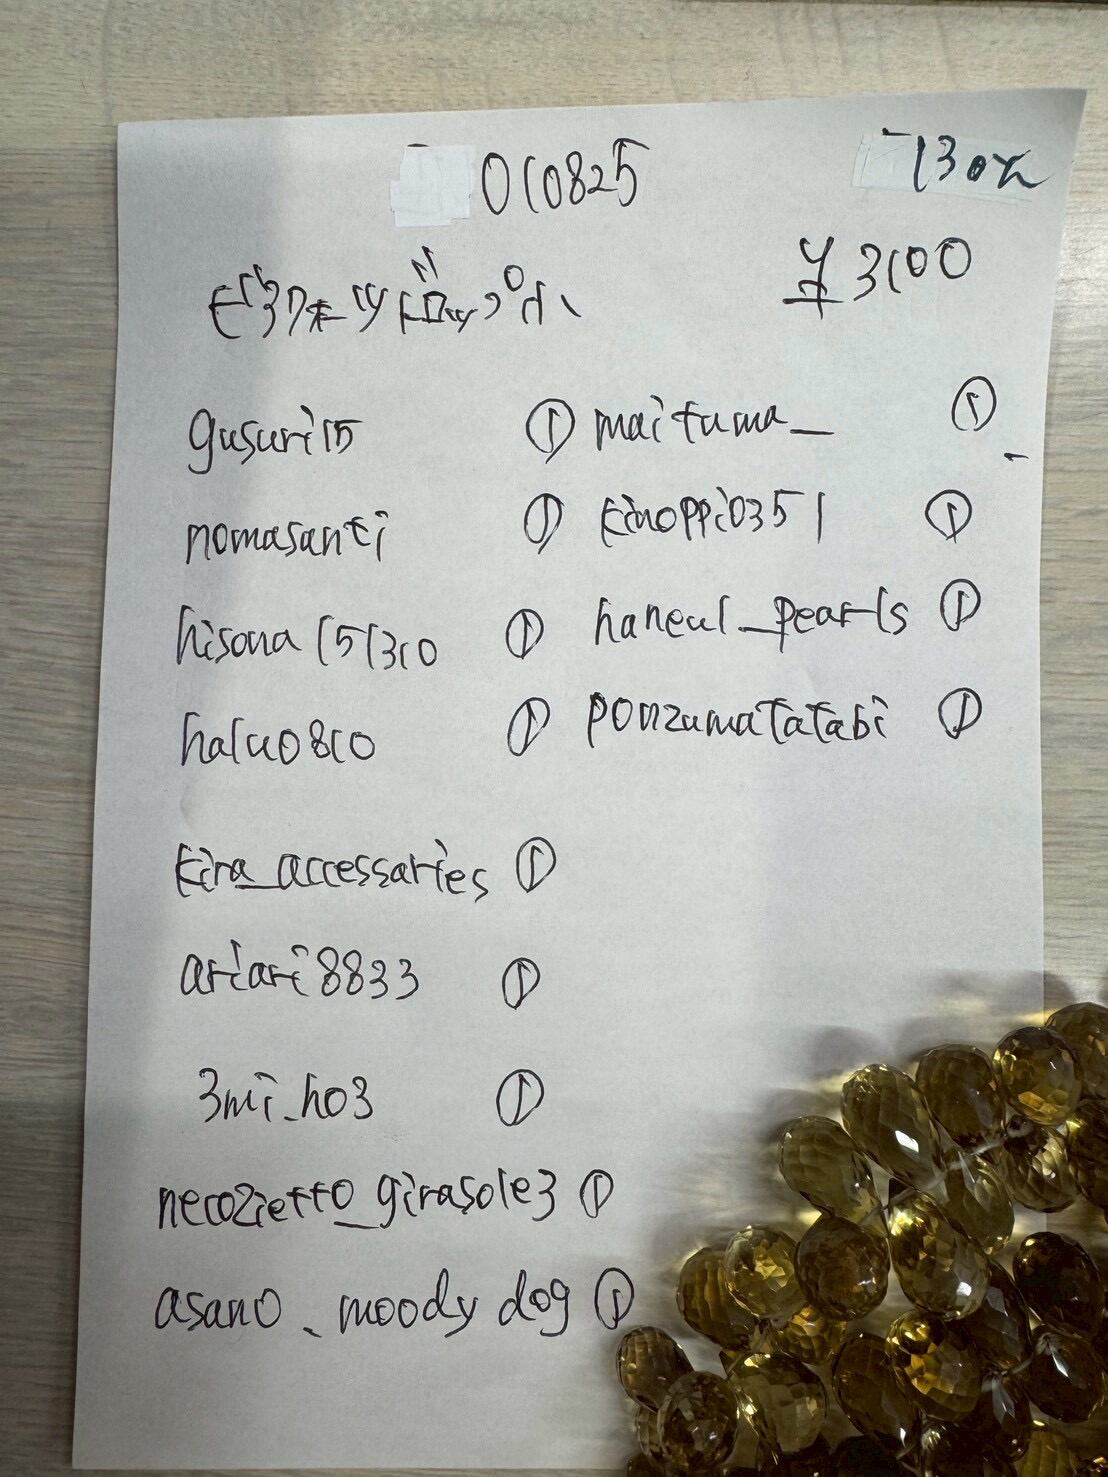 010825
130%
¥3100
gusuri15 ① maituma_ ①
nomasanti ① kinoppi0351 ①
hisona151310 ① haneul_pearls ①
halu0810 ① ponzumatatabi ①
kira_accessaries ①
ariari8833 ①
3mi_ho3 ①
necozietto_girasole3 ①
asano_moody dog ①